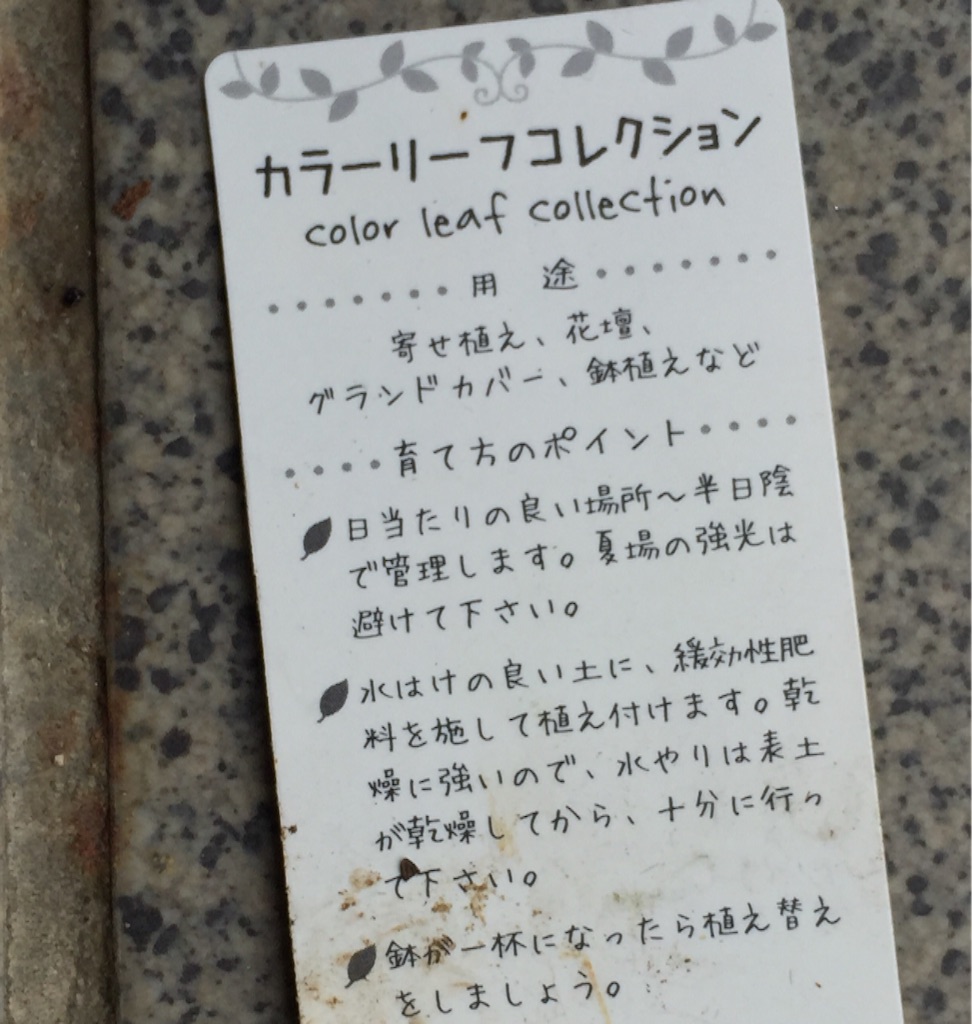 カラーリーフコレクション
color leaf collection
用 途
寄せ植え、花壇、
グランドカバー、鉢植えなど
育て方のポイント
日当たりの良い場所～半日陰
で管理します。夏場の強光は
避けて下さい。
水はけの良い土に、緩効性肥
料を施して植え付けます。乾
燥に強いので、水やりは表土
が乾燥してから、十分に行っ
て下さい。
鉢が一杯になったら植え替え
をしましょう。